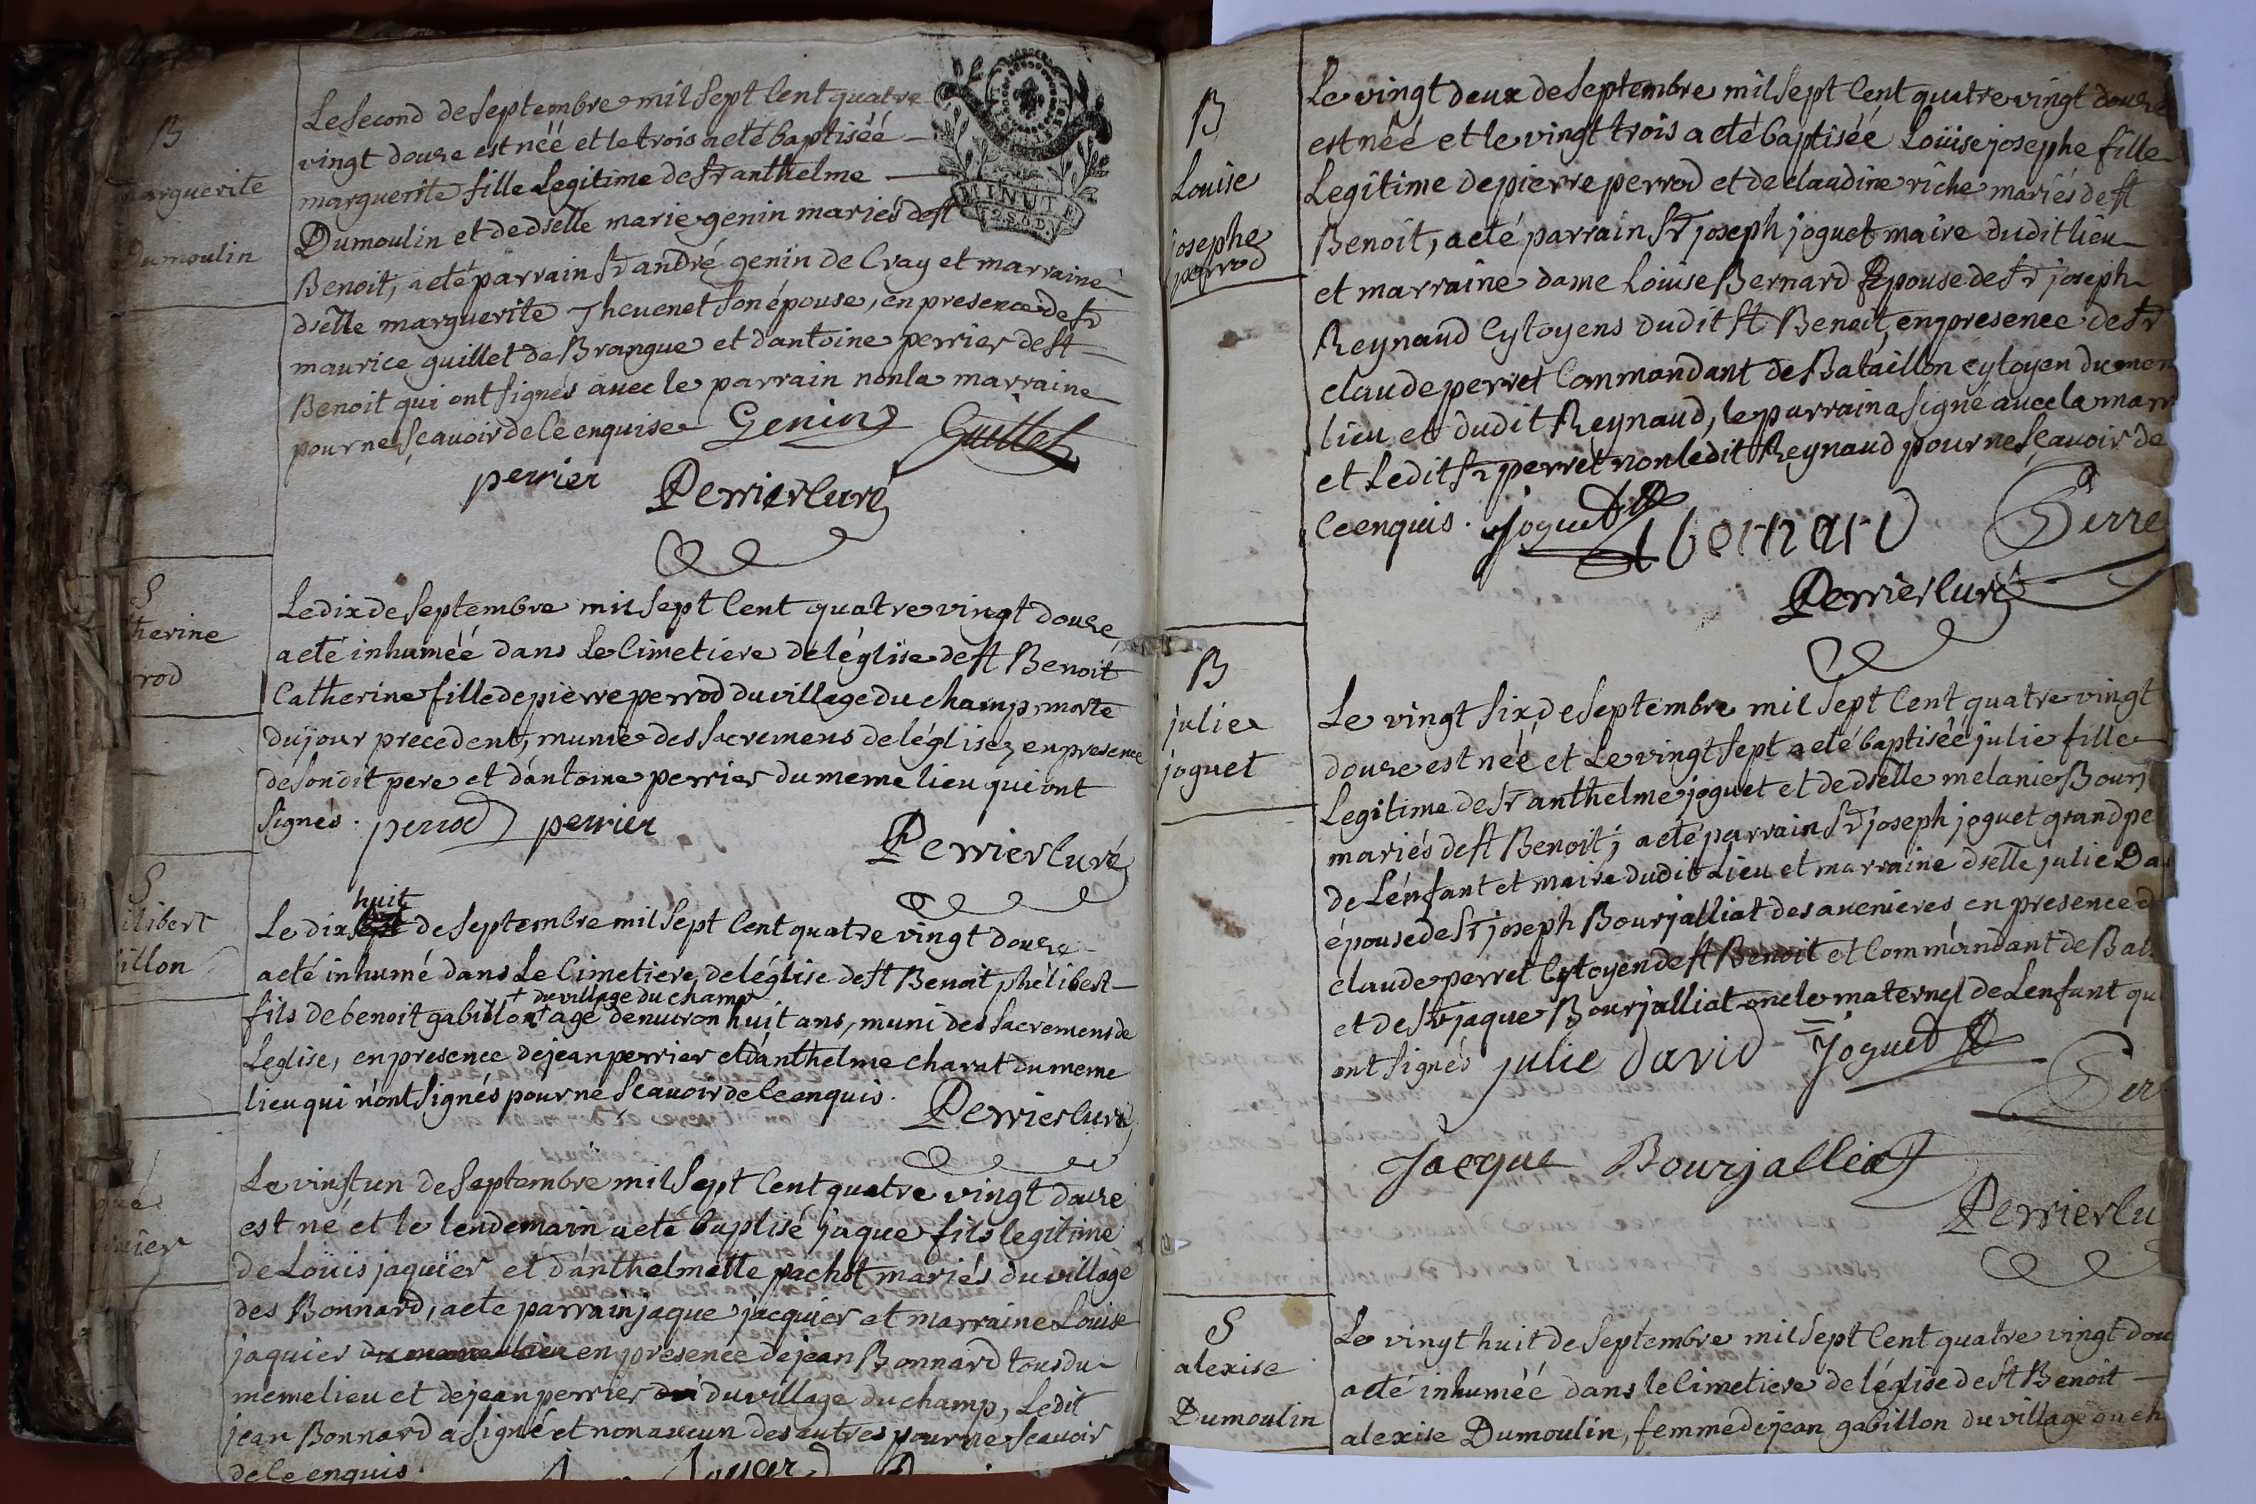 B
marguerite
Dumoulin
Le second de septembre mil sept Cent quatre
vingt douze est néé et le trois a eté baptiséé
marguerite fille Legitime de sr anthelme
Dumoulin et de dselle marie genin mariés de st
Benoit, a eté parrain sr andré genin de Cray et marraine
dselle marguerite Thevenet son épouse, en presence de sr
maurice guillet de Brangue et d'antoine perrier de st
Benoit qui ont signés avec le parrain non la marraine
pour ne sçavoir de ce enquise Genin Guillet
perrier Perrier Curé
MINUTE
S
therine
rod
Le dix de septembre mil sept Cent quatre vingt douze
a eté inhuméé dans Le Cimetiere de léglise de st Benoit
Catherine fille de pierre perrod du village du champ, morte
du jour precedent, munie des sacremens de léglise, en presence
de son dit pere et d'antoine perrier du méme lieu qui ont
signés. perrod perrier
Perrier Curé
S
ilibert
illon
huit
Le dix de septembre mil sept Cent quatre vingt douze
a eté inhumé dans Le Cimetiere de léglise de st Benoit philibert
+ du village du champ
fils de benoit gabillon + agé d'environ huit ans, muni des sacremens de
Leglise, en presence de jean perrier et d'anthelme charat du meme
lieu qui n'ont signés pour ne sçavoir de ce enquis.
Perrier Curé
que
quier
Le vingt un de septembre mil sept Cent quatre vingt douze
est né et le lendemain a eté baptisé jaque fils legitime
de Loüis jaquier et d'anthelmette pachot mariés du village
des Bonnard, a eté parrain jaque jacquier et marraine Louise
jaquier du meme lieu en presence de jean Bonnard tous du
meme lieu et de jean perrier du village du champ, Ledit
jean Bonnard a signé et non aucun des autres pour ne sçavoir
de ce enquis.
B
Louise
josephe
perrod
Le vingt deux de septembre mil sept Cent quatre vingt douze
est néé et le vingt trois a eté baptiséé Loüise josephe fille
Legitime de pierre perrod et de claudine riche mariés de st
Benoit, a eté parrain sr joseph joguet maire dudit lieu
et marraine dame Louise Bernard Epouse de sr joseph
Reynaud Cytoyens dudit st Benoit, en presence de sr
claude perret Commandant de Bataillon cytoyen du mem
lieu et dudit Reynaud, le parrain a signé avec la marr
et Ledit sr perret non ledit Reynaud pour ne sçavoir de
ce enquis. joguet l bernard Perre
Perrier Curé
B
julie
joguet
Le vingt six de septembre mil sept Cent quatre vingt
douze est néé et Le vingt sept a eté baptiséé julie fille
Legitime de sr anthelme joguet et de dselle melanie Bourj
mariés de st Benoit, a eté parrain sr joseph joguet grand pe
de L'enfant et maire dudit Lieu et marraine dselle julie Da
épouse de sr joseph Bourjalliat des avenieres en presence d
claude perret Cytoyen de st Benoit et Commandant de Bat
et de sr jaque Bourjalliat oncle maternel de L'enfant qu
ont signés julie david joguet
Per
Jacque Bourjalliat
Perrier Cu
S
alexise
Dumoulin
Le vingt huit de septembre mil sept Cent quatre vingt dou
a eté inhuméé dans le Cimetiere de léglise de st Benoit
alexise Dumoulin, femme de jean gabillon du village on ch